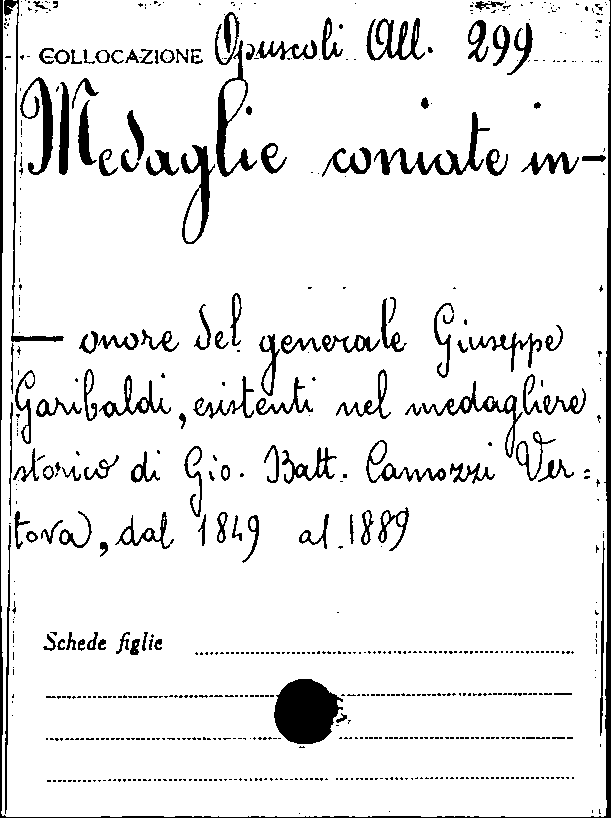 COLLOCAZIONE Opuscoli All. 299
Medaglie coniate in-
— onore del generale Giuseppe
Garibaldi, esistenti nel medagliere
storico di Gio. Batt. Camozzi Ver=
tova, dal 1849 al 1889
Schede figlie